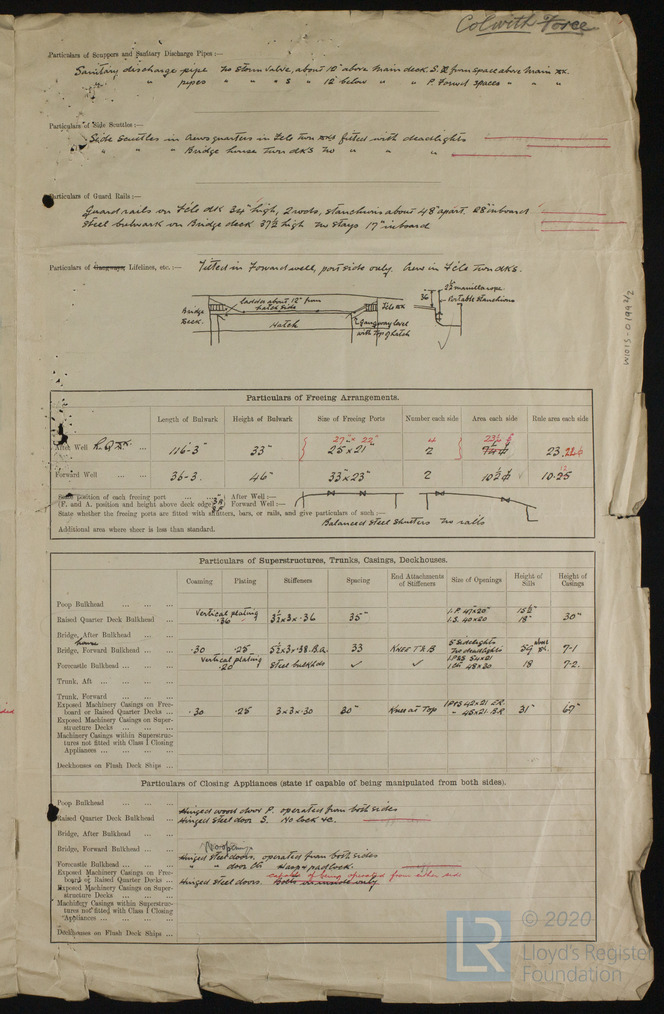 Colwith Force
Particulars of Scuppers and Sanitary Discharge Pipes :—
Sanitary discharge pipe no storm valve, about 10" above main deck S. from space above main dk.
" pipes " " " 5 " 12" below " " P. Forwd spaces " " "
Particulars of Side Scuttles :—
Side Scuttles in Crews quarters in Fcle twn dks fitted with deadlights
" " " Bridge house twn dks no " " "
Particulars of Guard Rails :—
Guard rails on Fcle dk 34" high, 2 rods, stanchions about 48" apart. 28" inboard
Steel bulwark on Bridge deck 37½ high no stays 17" inboard
Particulars of Gangways, Lifelines, etc. :— Fitted in Forward well, port side only. Crew in Fcle twn dks.
2½" manilla rope
Portable stanchions
36
ladder about 12" from
hatch side
Bridge
Deck.
Hatch
Fcle dk
gangway level
with top of hatch
W1015-0199 2/2
Particulars of Freeing Arrangements.
Length of Bulwark Height of Bulwark Size of Freeing Ports Number each side Area each side Rule area each side
27" × 22" 4
After Well R.Q.dk ... 116-3" 33" 25" × 21" 2 23.
Forward Well ... ... 36-3. 46" 33" × 23" 2 10½ 10.25
State position of each freeing port ... ... After Well :—
(F. and A. position and height above deck edge) Forward Well :—
State whether the freeing ports are fitted with shutters, bars, or rails, and give particulars of such :—
Balanced Steel Shutters no rails
Additional area where sheer is less than standard.
Particulars of Superstructures, Trunks, Casings, Deckhouses.
Coaming Plating Stiffeners Spacing End Attachments of Stiffeners Size of Openings Height of Sills Height of Casings
Poop Bulkhead ... ... ...
Vertical plating 1.P. 47×20"
Raised Quarter Deck Bulkhead ... .36 3½×3×.36 35" 1.S. 40×20 18" 30"
Bridge, After Bulkhead ...
house 5 Sidelights about
Bridge, Forward Bulkhead ... .30 .25 5½×3×.38.B.A. 33 Knee T & B no deadlights 7-1
Vertical plating 1P&S 54×21
Forecastle Bulkhead ... ... .20 Steel bulkhds ✓ ✓ 1 48×30 18 7-2.
Trunk, Aft ... ... ...
Trunk, Forward ... ... ...
Exposed Machinery Casings on Free-
board or Raised Quarter Decks ... .30 .25 3×3×.30 30" Knee at Top 1P&S 42×21 E.R. 31" 67"
" 45×21. B.R.
Exposed Machinery Casings on Super-
structure Decks ... ... ...
Machinery Casings within Superstruc-
tures not fitted with Class 1 Closing
Appliances ... ... ...
Deckhouses on Flush Deck Ships ...
Particulars of Closing Appliances (state if capable of being manipulated from both sides).
Poop Bulkhead ... ... ...
Hinged wood door P. operated from both sides
Raised Quarter Deck Bulkhead ... Hinged steel door S. No lock &c.
Bridge, After Bulkhead ...
Bridge, Forward Bulkhead ... No openings
Hinged steel doors, operated from both sides
Forecastle Bulkhead ... ... " " door Hasp & padlock.
capable of being operated from either side
Exposed Machinery Casings on Free-
board or Raised Quarter Decks ... Hinged Steel doors. Bolts on inside only
Exposed Machinery Casings on Super-
structure Decks ... ... ...
Machinery Casings within Superstruc-
tures not fitted with Class 1 Closing
Appliances ... ... ...
Deckhouses on Flush Deck Ships ...
LR © 2020
Lloyd's Register
Foundation